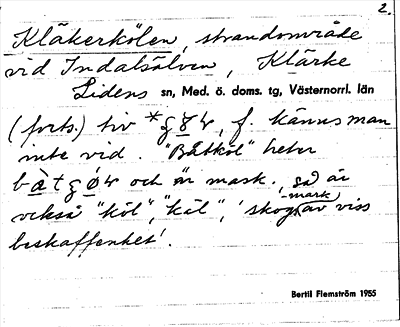 2.
Kläkerkölen, strandområde
vid Indalsälven, Klärke
Lidens sn, Med. ö. doms. tg, Västernorrl. län
(forts.) tiv * f. kännes man
inte vid. "Båtköl" heter
och är mask., så är
också "köl", "käl", 'skog(mark) av viss
beskaffenhet'.
Bertil Flemström 1955